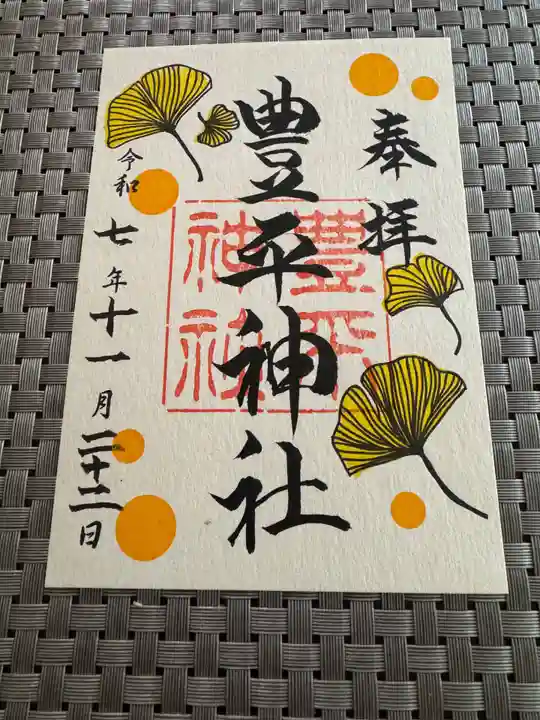 奉拝
豊平神社
豊平
神社
令和七年十一月二十二日